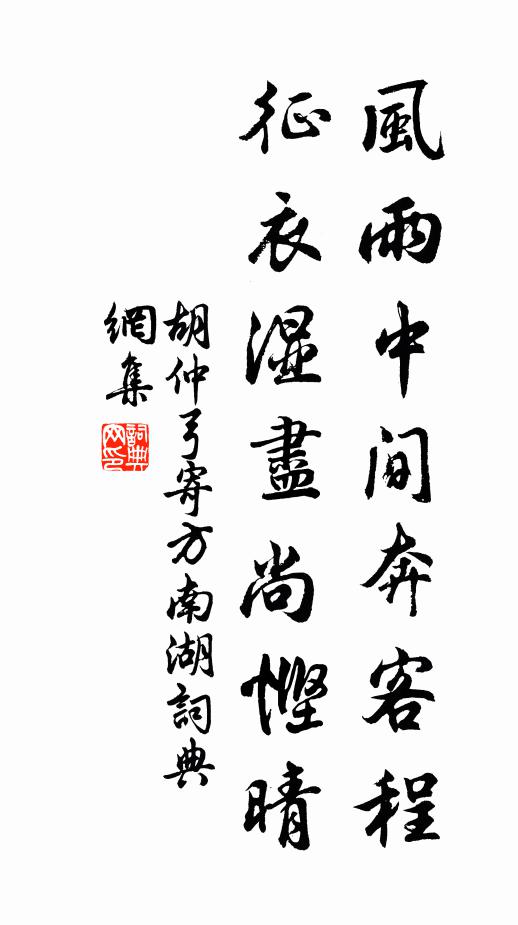 風雨中間奔客程
征衣濕盡尚慳晴
胡仲弓寄方南湖詞典
網集
詞典
网印